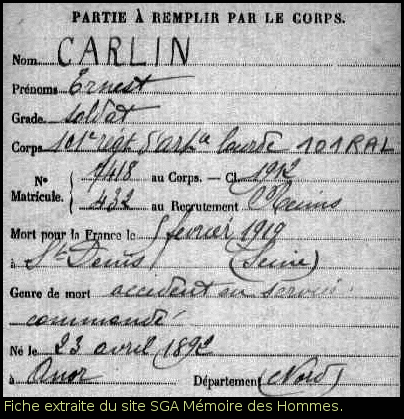 PARTIE À REMPLIR PAR LE CORPS.
Nom CARLIN
Prénoms Ernest
Grade soldat
Corps 101e régt d'artie lourde 101 RAL
Nos Matricule. { 7418 au Corps. — Cl 1912
452 au Recrutement Reims
Mort pour la France le 5 février 1919
à St Denis (Seine)
Genre de mort accident en service
commandé
Né le 23 avril 1892
à Anor Département (Nord)
Fiche extraite du site SGA Mémoire des Hommes.